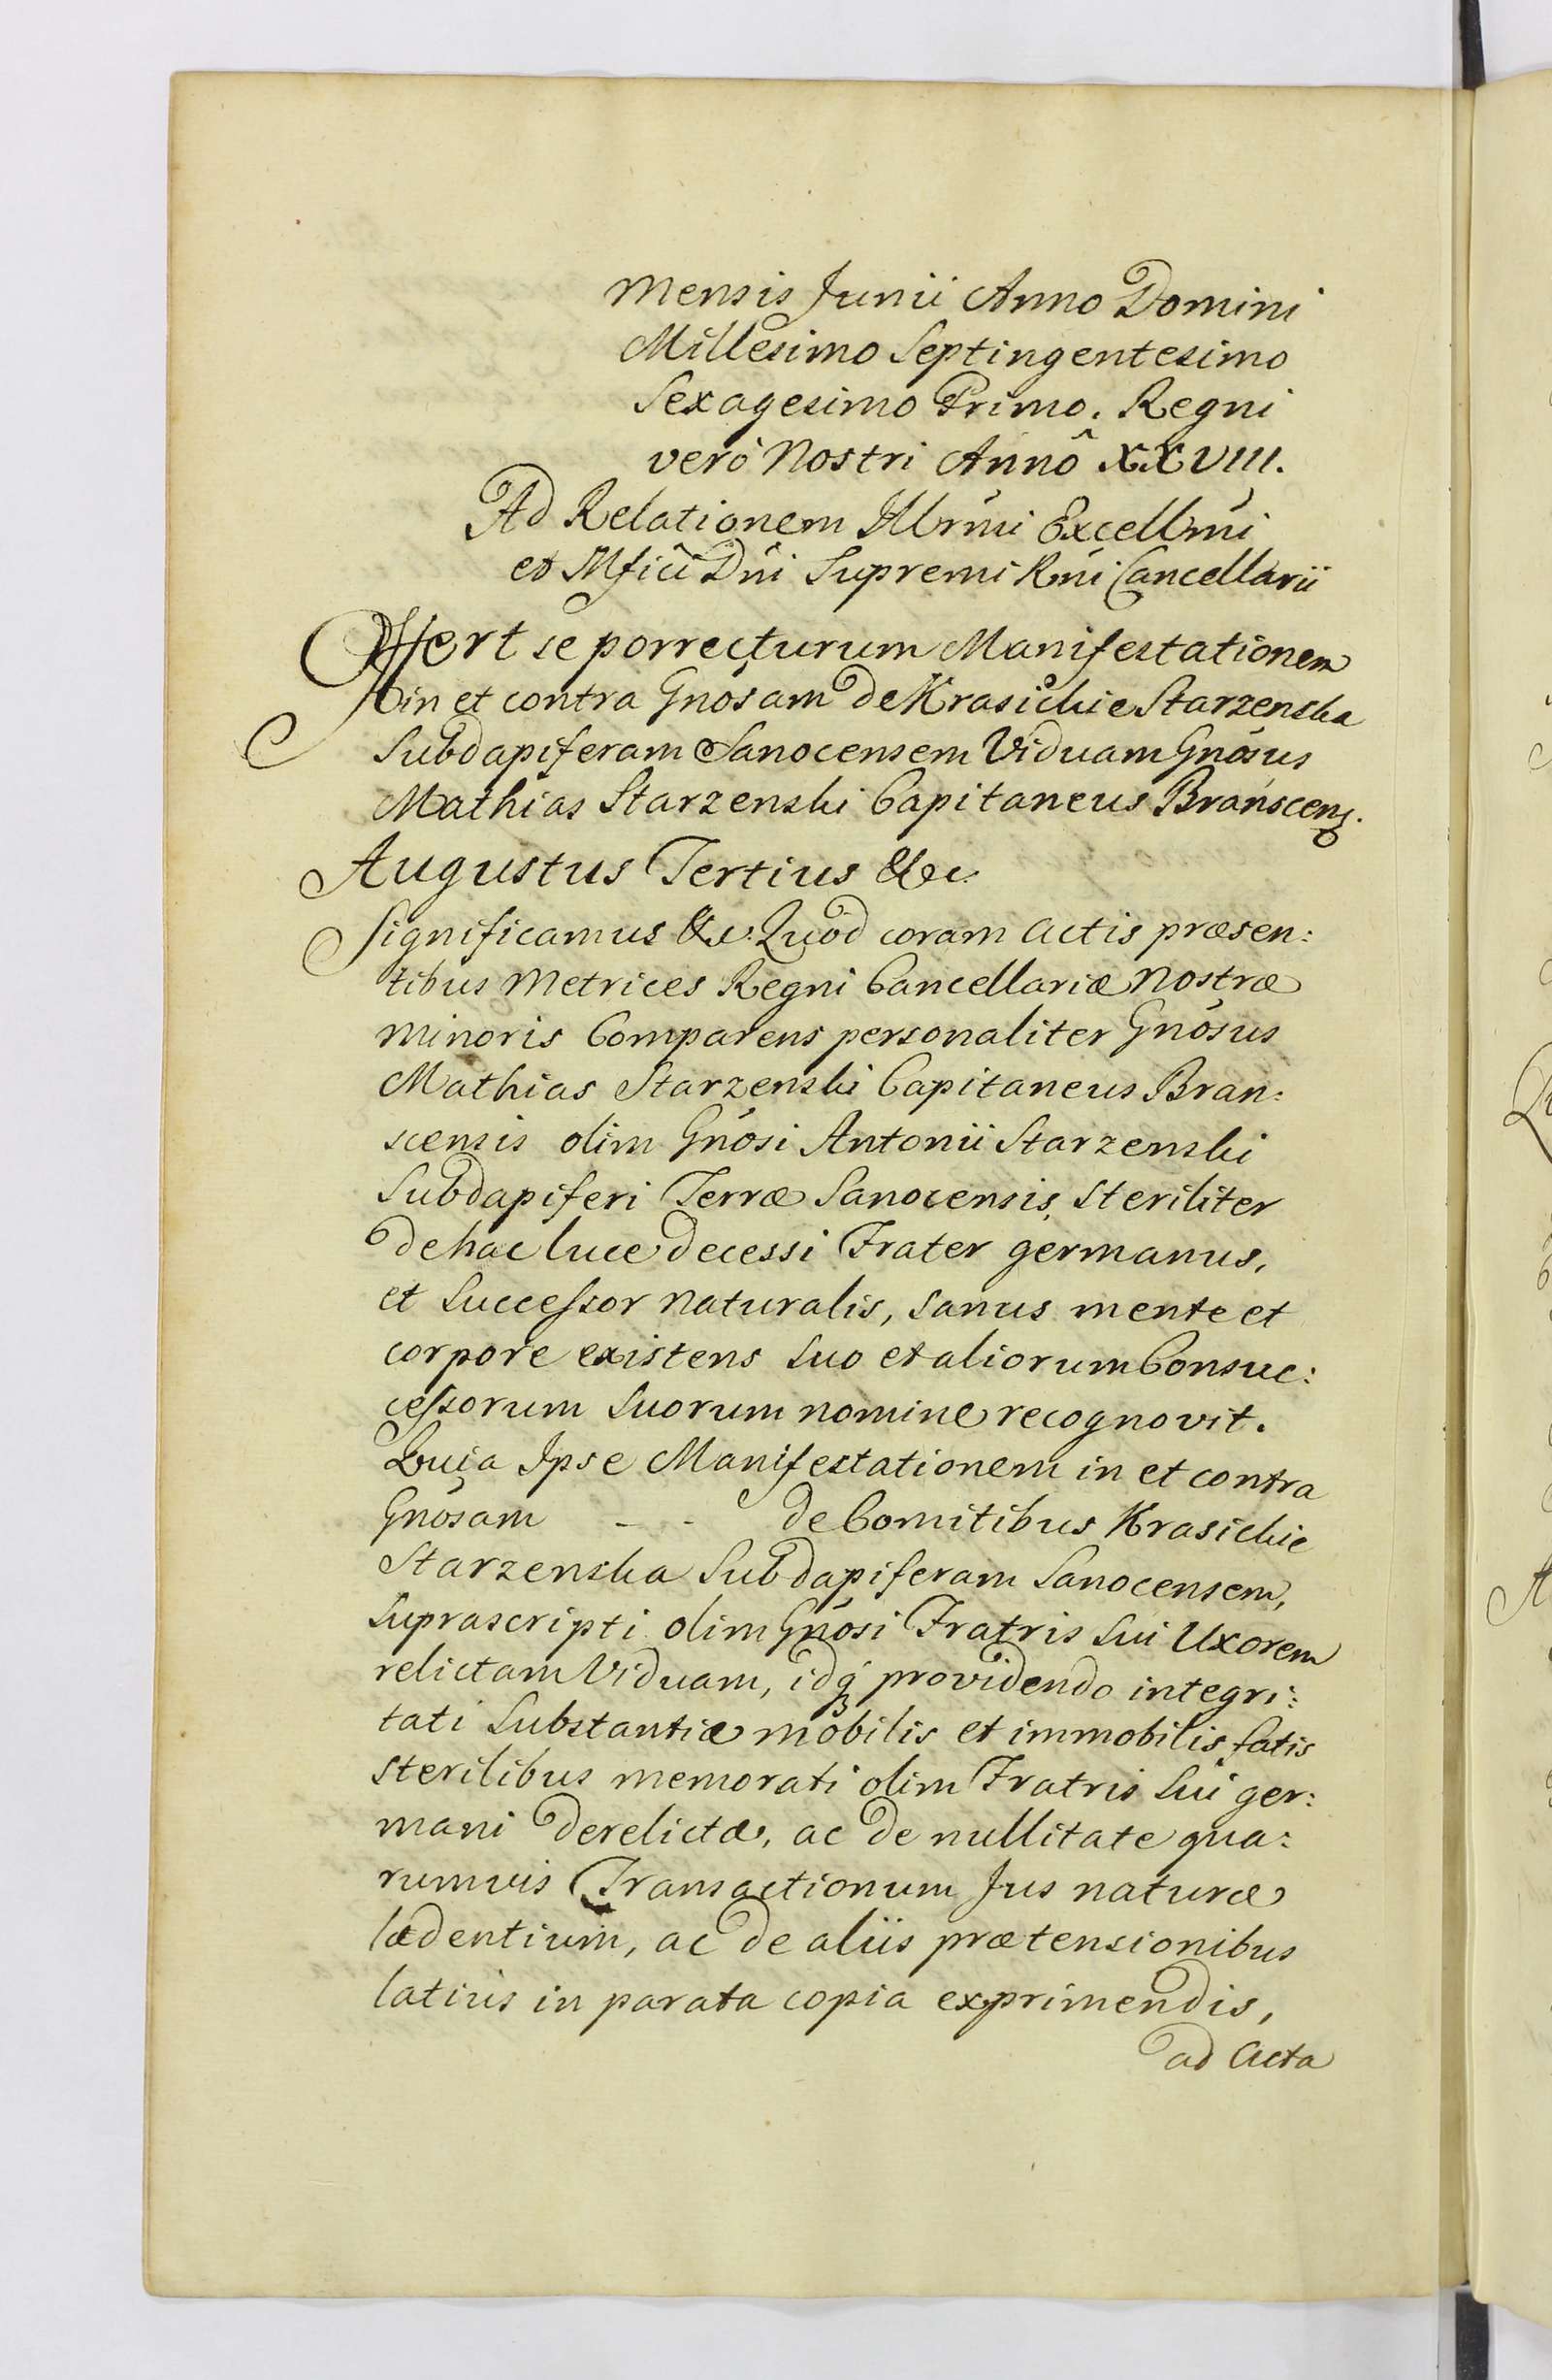 Mensis Junii Anno Domini
Millesimo Septingentesimo
Sexagesimo Primo. Regni
verò Nostri Annô XXVIII.
Ad Relationem Illrmi Excellmi
et Mfici Dni Supremi Rni Cancellarii
Offert se porrecturum Manifestationem
in et contra Gnosam de Krasickie Starzenska
Subdapiferam Sanocensem Viduam Gnosus
Mathias Starzenski Capitaneus Branscens.
Augustus Tertius &c.
Significamus &c. Quod coram Actis præsen:
tibus Metrices Regni Cancellariæ Nostræ
Minoris Comparens personaliter Gnosus
Mathias Starzenski Capitaneus Bran:
scensis olim Gnosi Antonii Starzenski
Subdapiferi Terræ Sanocensis, steriliter
de hac luce decessi Frater germanus,
et Successor Naturalis, sanus mente et
corpore existens Suo et aliorum Consuc:
cessorum Suorum nomine recognovit.
Quia Ipse Manifestationem in et contra
Gnosam - - de Comitibus Krasickie
Starzenska Subdapiferam Sanocensem,
Suprascripti olim Gnosi Fratris Sui Uxorem
relictam Viduam, idq providendo integri:
tati Substantiæ mobilis et immobilis fatis
sterilibus memorati olim Fratris Sui ger:
mani derelictæ, ac de nullitate qua:
rumvis Transactionum Jus naturæ
lædentium, ac de aliis prætensionibus
latius in parata copia exprimendis,
ad Acta